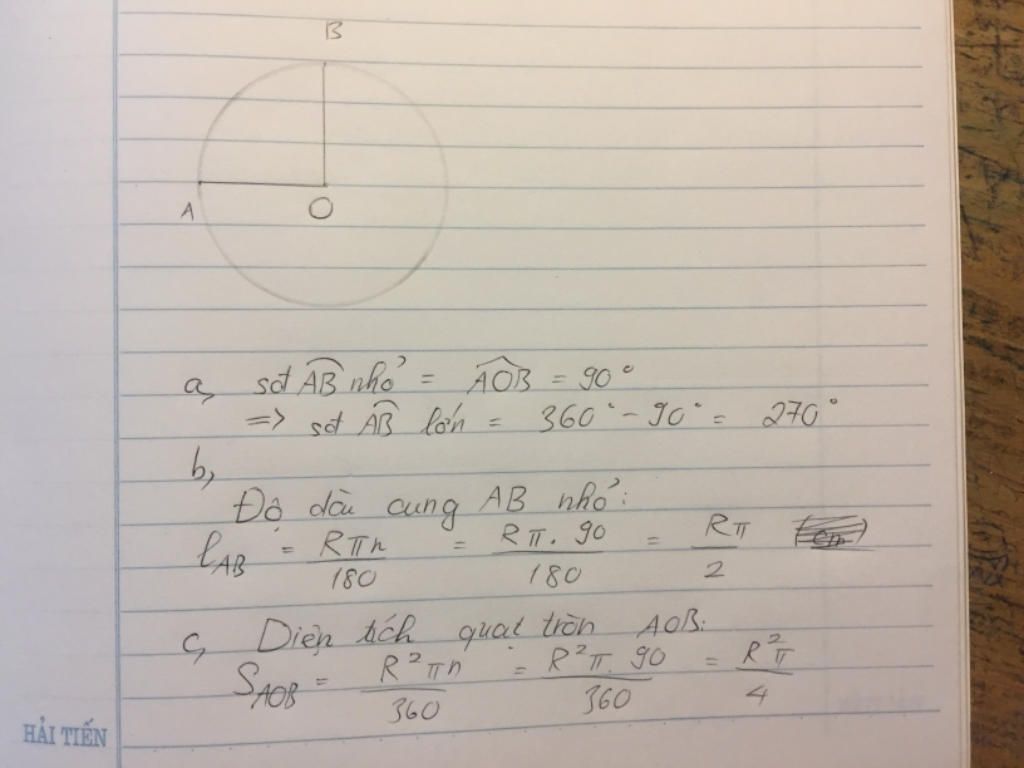 B
A
O
a, sđ AB nhỏ = AOB = 90°
=> sđ AB lớn = 360° - 90° = 270°
b,
Độ dài cung AB nhỏ:
l_AB = Rπn/180 = Rπ.90/180 = Rπ/2
c, Diện tích quạt tròn AOB:
S_AOB = R²πn/360 = R²π.90/360 = R²π/4
HẢI TIẾN